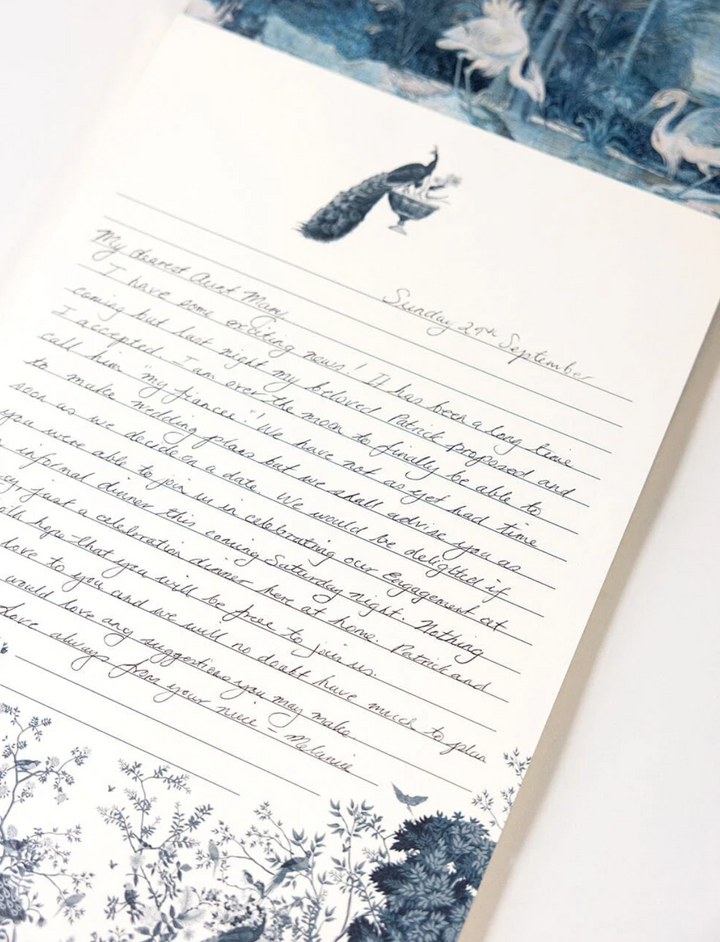 Sunday 29th September
My dearest Aunt Mary
I have some exciting news! It has been a long time
coming but last night my beloved Patrick proposed and
I accepted. I am over the moon to finally be able to
call him "my fiancee."! We have not as yet had time
to make wedding plans but we shall advise you as
soon as we decide on a date. We would be delighted if
you were able to join us in celebrating our engagement at
informal dinner this coming Saturday night. Nothing
just a celebration dinner here at home. Patrick and
hope that you will be free to join us.
love to you and we will no doubt have much to plan
would love any suggestions you may make
love always from your niece - Melanie